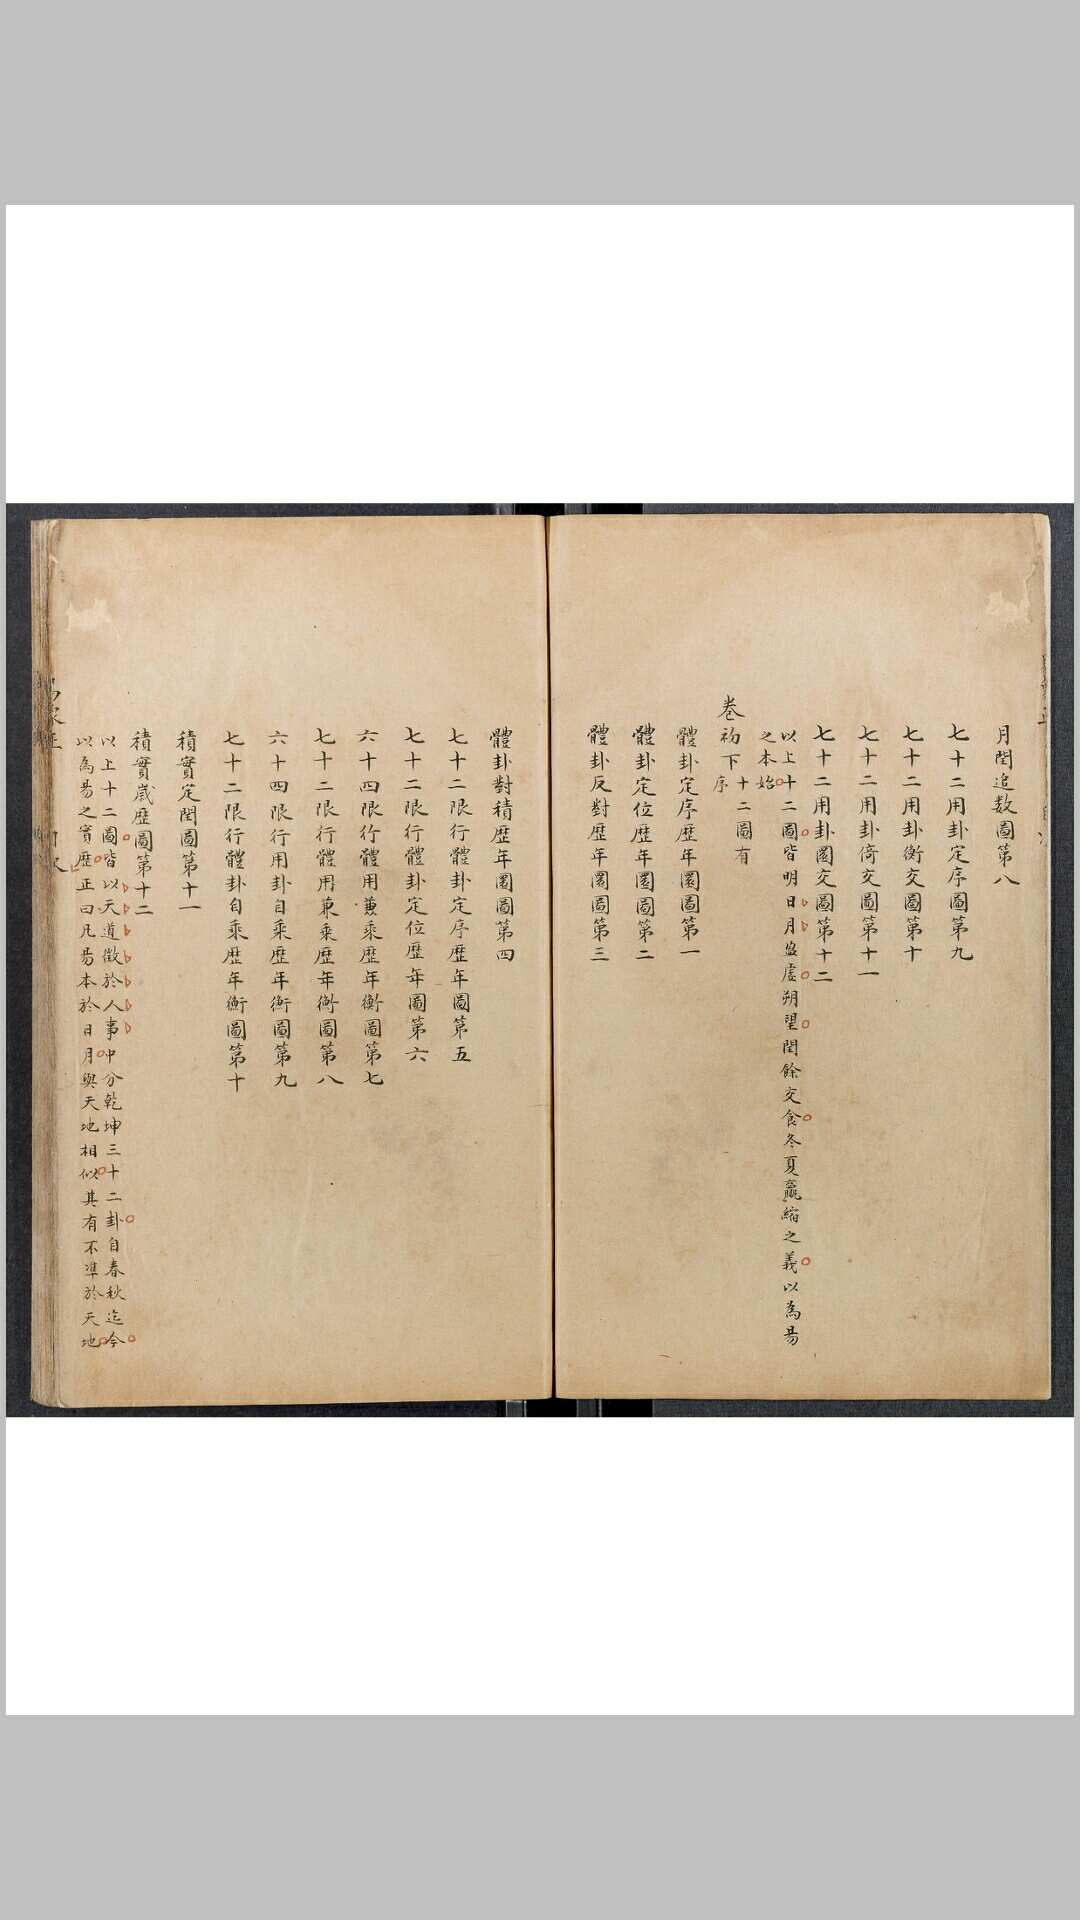 月閏追数圖第八
七十二用卦定序圖第九
七十二用卦衡交圖第十
七十二用卦倚交圖第十一
七十二用卦圜交圖第十二
以上十二圖皆明日月盈虛朔望閏餘交食冬夏贏縮之義以為易
之本始
卷初下
十二圖有
序
體卦定序歷年圜圖第一
體卦定位歷年圜圖第二
體卦反對歷年圜圖第三
體卦對積歷年圜圖第四
七十二限行體卦定序歷年圖第五
七十二限行體卦定位歷年圖第六
六十四限行體用兼乘歷年衡圖第七
七十二限行體用兼乘歷年衡圖第八
六十四限行用卦自乘歷年衡圖第九
七十二限行體卦自乘歷年衡圖第十
積實定閏圖第十一
積實歲歷圖第十二
以上十二圖皆以天道徵於人事中分乾坤三十二卦自春秋迄今
以為易之實歷正曰凡易本於日月與天地相似其有不準於天地